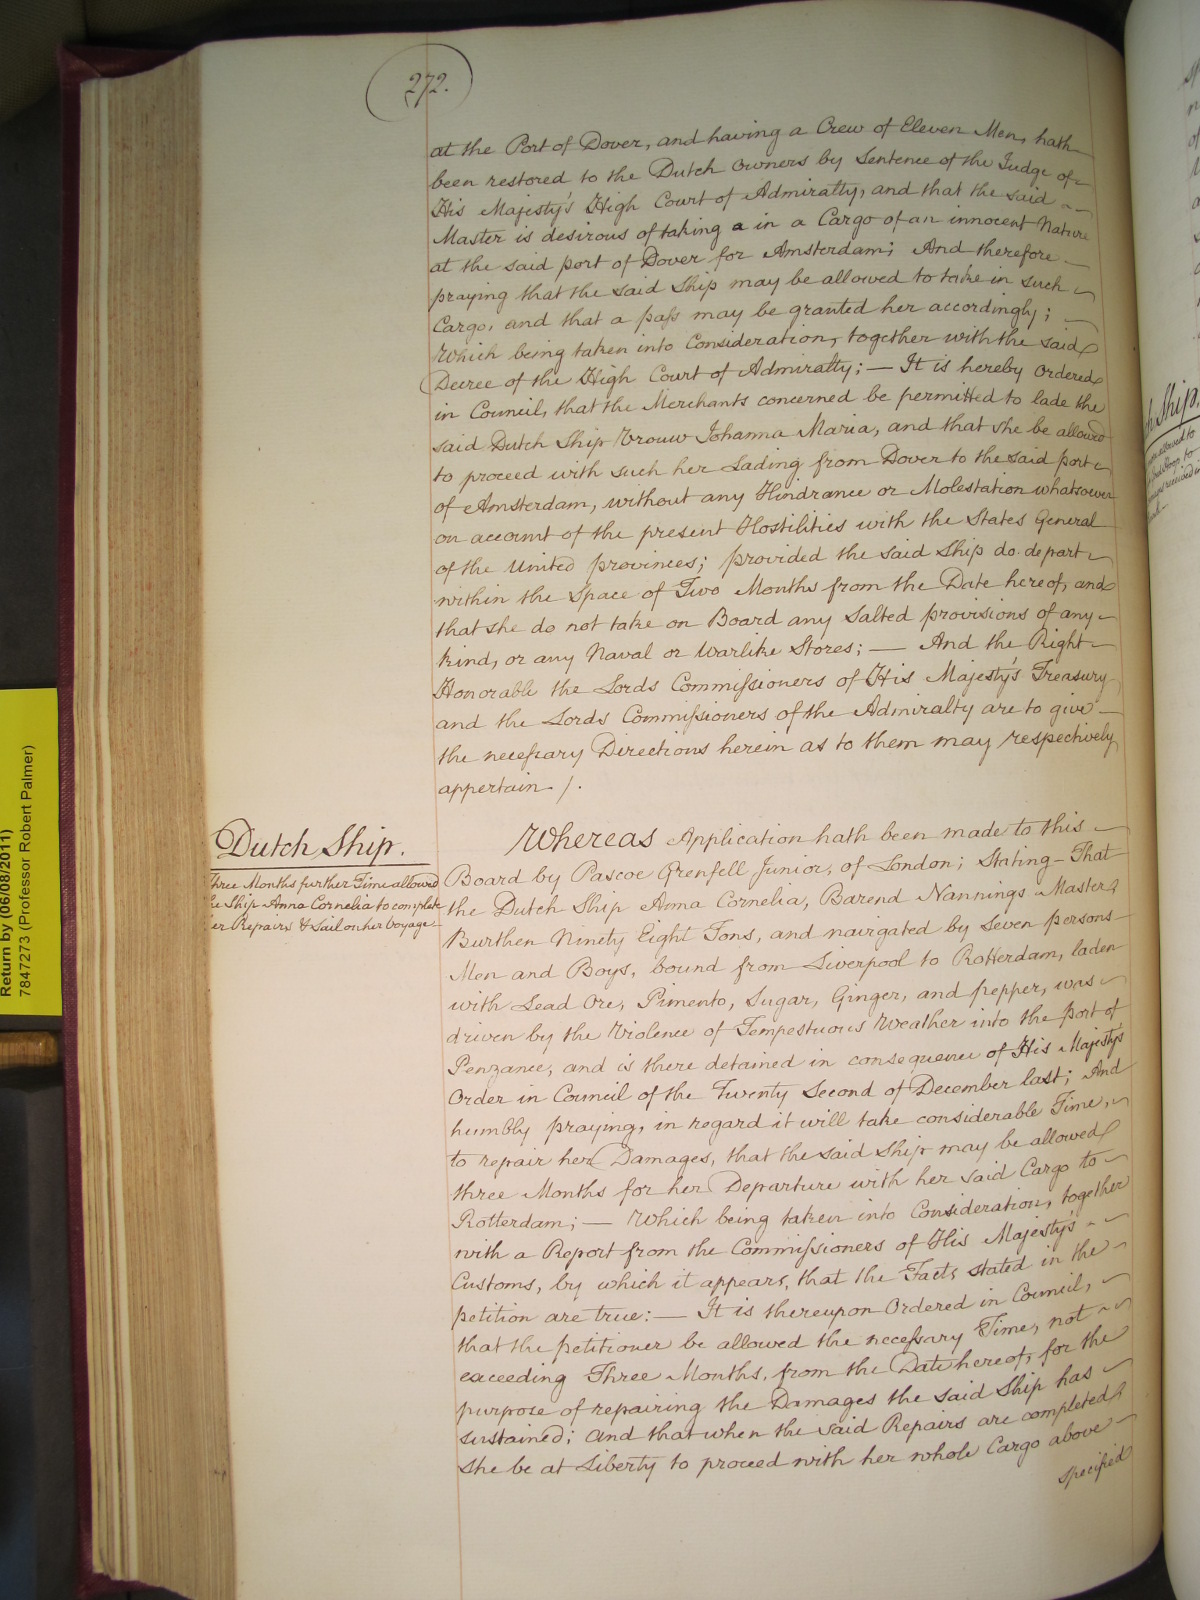 272.
at the Port of Dover, and having a Crew of Eleven Men, hath
been restored to the Dutch Owners by Sentence of the Judge of
His Majesty's High Court of Admiralty, and that the said
Master is desirous of taking a in a Cargo of an innocent Nature
at the said port of Dover for Amsterdam; And therefore
praying that the said Ship may be allowed to take in such
Cargo, and that a pass may be granted her accordingly;
Which being taken into Consideration, together with the said
Decree of the High Court of Admiralty; — It is hereby Ordered
in Council, that the Merchants concerned be permitted to lade the
said Dutch Ship Vrouw Johanna Maria, and that she be allowed
to proceed with such her Lading from Dover to the said port
of Amsterdam, without any Hindrance or Molestation whatsoever
on account of the present Hostilities with the States General
of the United provinces; provided the said Ship do depart
within the Space of Two Months from the Date hereof, and
that she do not take on Board any Salted provisions of any
kind, or any Naval or Warlike Stores; — And the Right
Honorable the Lords Commissioners of His Majesty's Treasury
and the Lords Commissioners of the Admiralty are to give
the necessary Directions herein as to them may respectively
appertain /.
Dutch Ship.
Three Months further Time allowed
Ship Anna Cornelia to complete
er Repairs & Sail on her Voyage
Whereas Application hath been made to this
Board by Pascoe Grenfell Junior, of London; Stating - That
the Dutch Ship Anna Cornelia, Barend Nannings Master,
Burthen Ninety Eight Tons, and navigated by Seven persons
Men and Boys, bound from Liverpool to Rotterdam, laden
with Lead Ore, Pimento, Sugar, Ginger, and pepper, was
driven by the Violence of Tempestuous Weather into the port of
Penzance, and is there detained in consequence of His Majesty's
Order in Council of the Twenty Second of December last; And
humbly praying, in regard it will take considerable Time,
to repair her Damages, that the said Ship may be allowed
three Months for her Departure with her said Cargo to
Rotterdam; — Which being taken into Consideration, together
with a Report from the Commissioners of His Majesty's
Customs, by which it appears, that the Facts stated in the
petition are true: — It is thereupon Ordered in Council,
that the petitioner be allowed the necessary Time, not
exceeding Three Months, from the Date hereof, for the
purpose of repairing the Damages the said Ship has
sustained; and that when the said Repairs are completed
She be at Liberty to proceed with her whole Cargo above
specified
Return by (06/08/2011)
7847273 (Professor Robert Palmer)
Ship.
allowed to